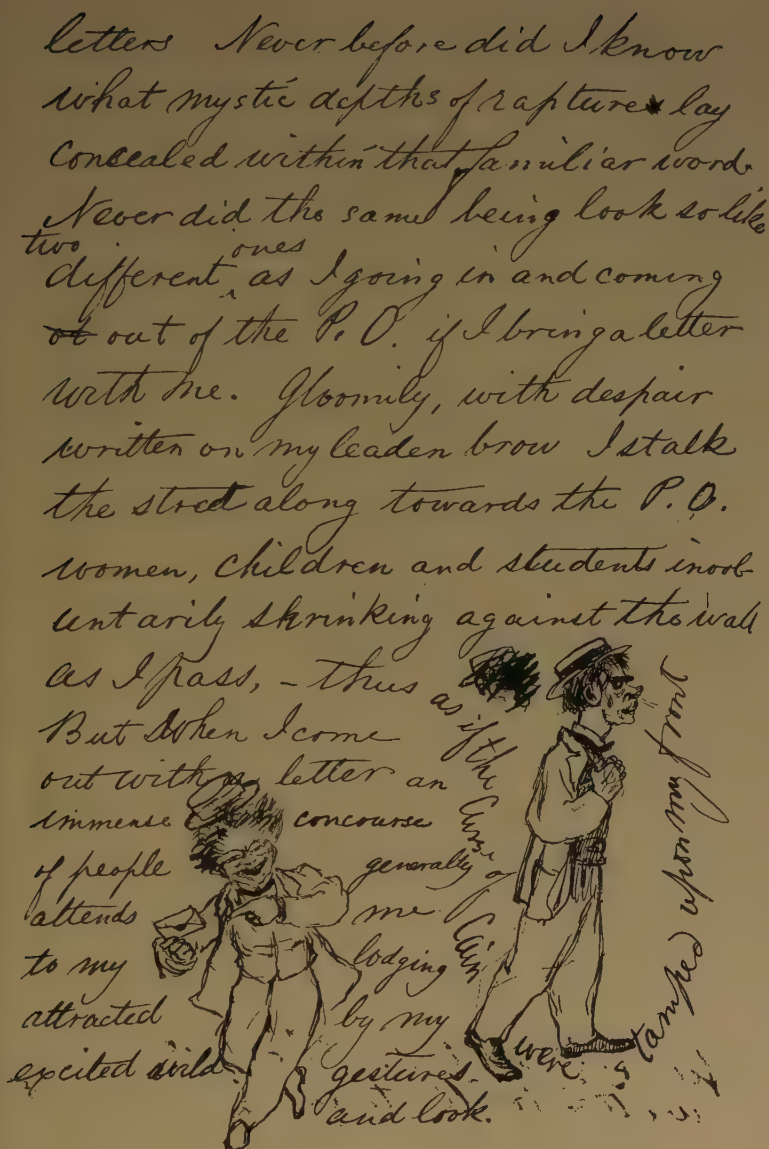 letters Never before did I know
what mystic depths of rapture lay
concealed within that familiar word.
Never did the same being look so like
two different ones as I going in and coming
ot out of the P. O. if I bring a letter
with me. Gloomily, with despair
written on my leaden brow I stalk
the street along towards the P. O.
women, children and students invol-
untarily shrinking against the wall
as I pass, – thus
as if the curse of Cain were stamped upon my front
But when I come
out with a letter an
immense concourse
of people generally
attends me
to my lodging
attracted by my
excited wild gestures
and look.